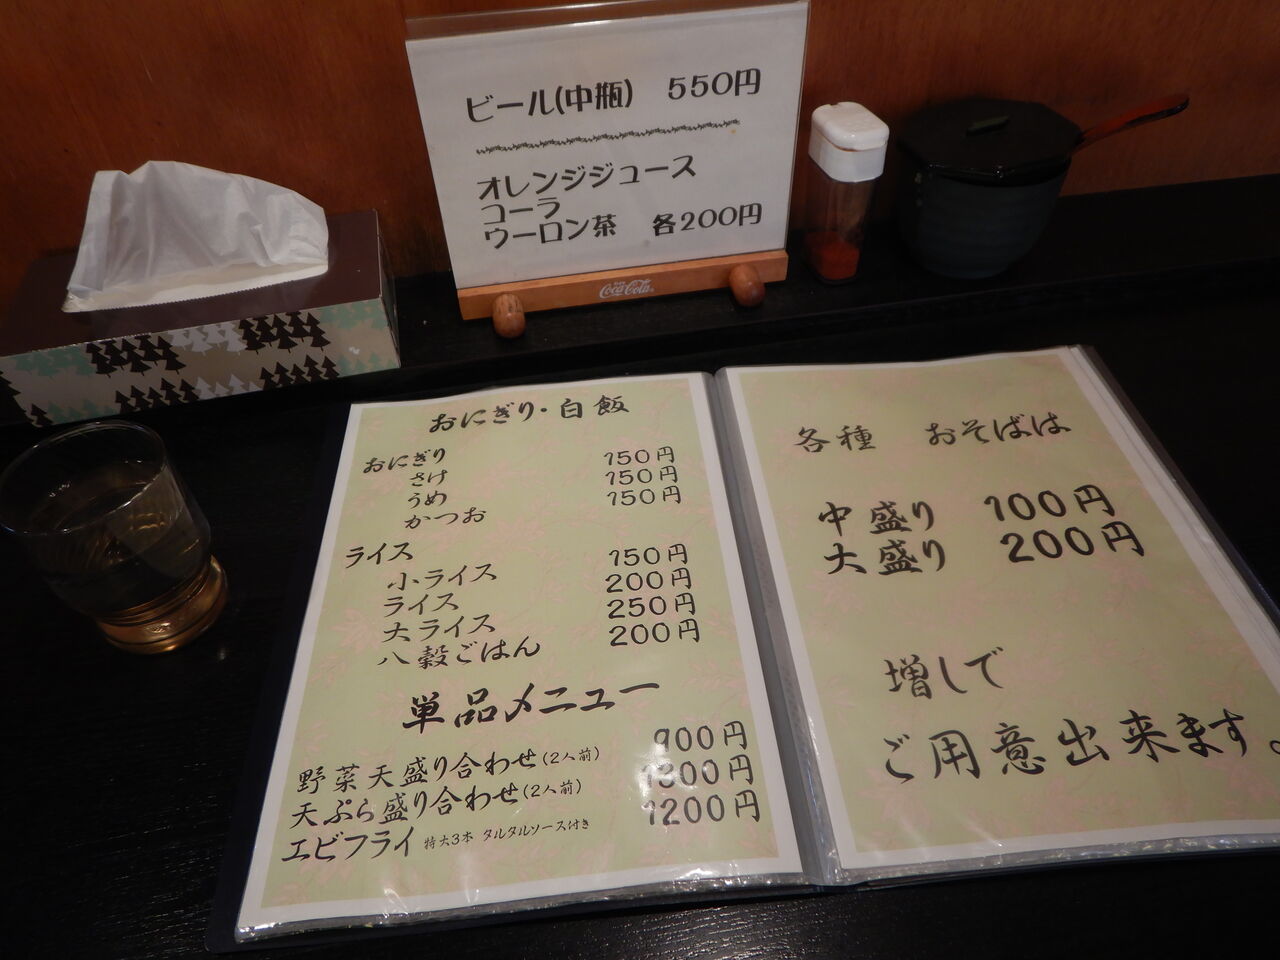 ビール(中瓶) 550円
オレンジジュース
コーラ
ウーロン茶 各200円
Coca-Cola
おにぎり・白飯
おにぎり
さけ 150円
うめ 150円
かつお 150円
ライス
小ライス 150円
ライス 200円
大ライス 250円
八穀ごはん 200円
単品メニュー
野菜天盛り合わせ(2人前) 900円
天ぷら盛り合わせ(2人前) 1300円
エビフライ 特大3本 タルタルソース付き 1200円
各種 おそばは
中盛り 100円
大盛り 200円
増しで
ご用意出来ます。